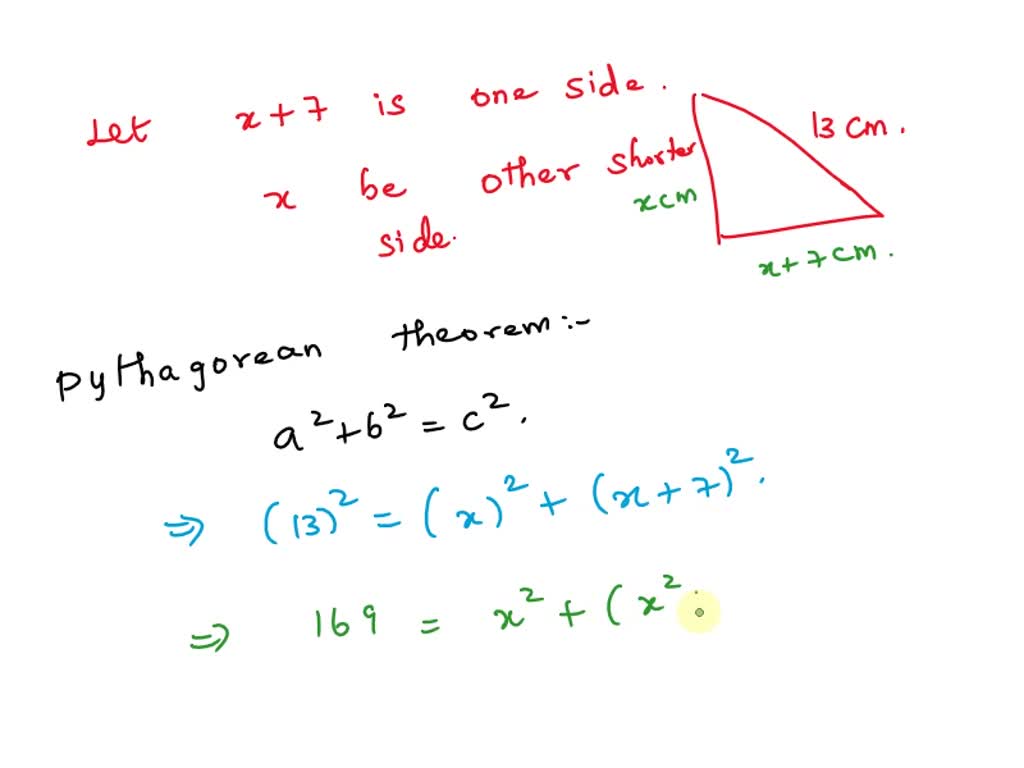 Let x+7 is one side.
x be other shorter
side.
13 cm.
x cm
x+7 cm.
Pythagorean theorem:-
a²+b² = c².
⇒ (13)² = (x)² + (x+7)².
⇒ 169 = x² + (x²